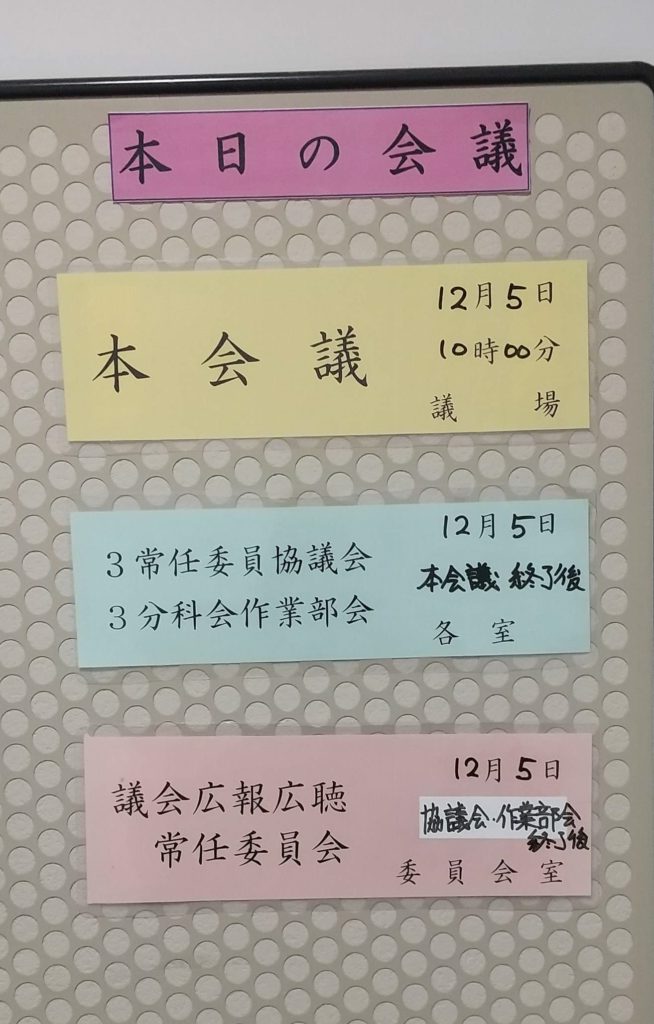 本日の会議
本会議
12月5日
10時00分
議場
3常任委員協議会
3分科会作業部会
12月5日
本会議終了後
各室
議会広報広聴
常任委員会
12月5日
協議会・作業部会
終了後
委員会室